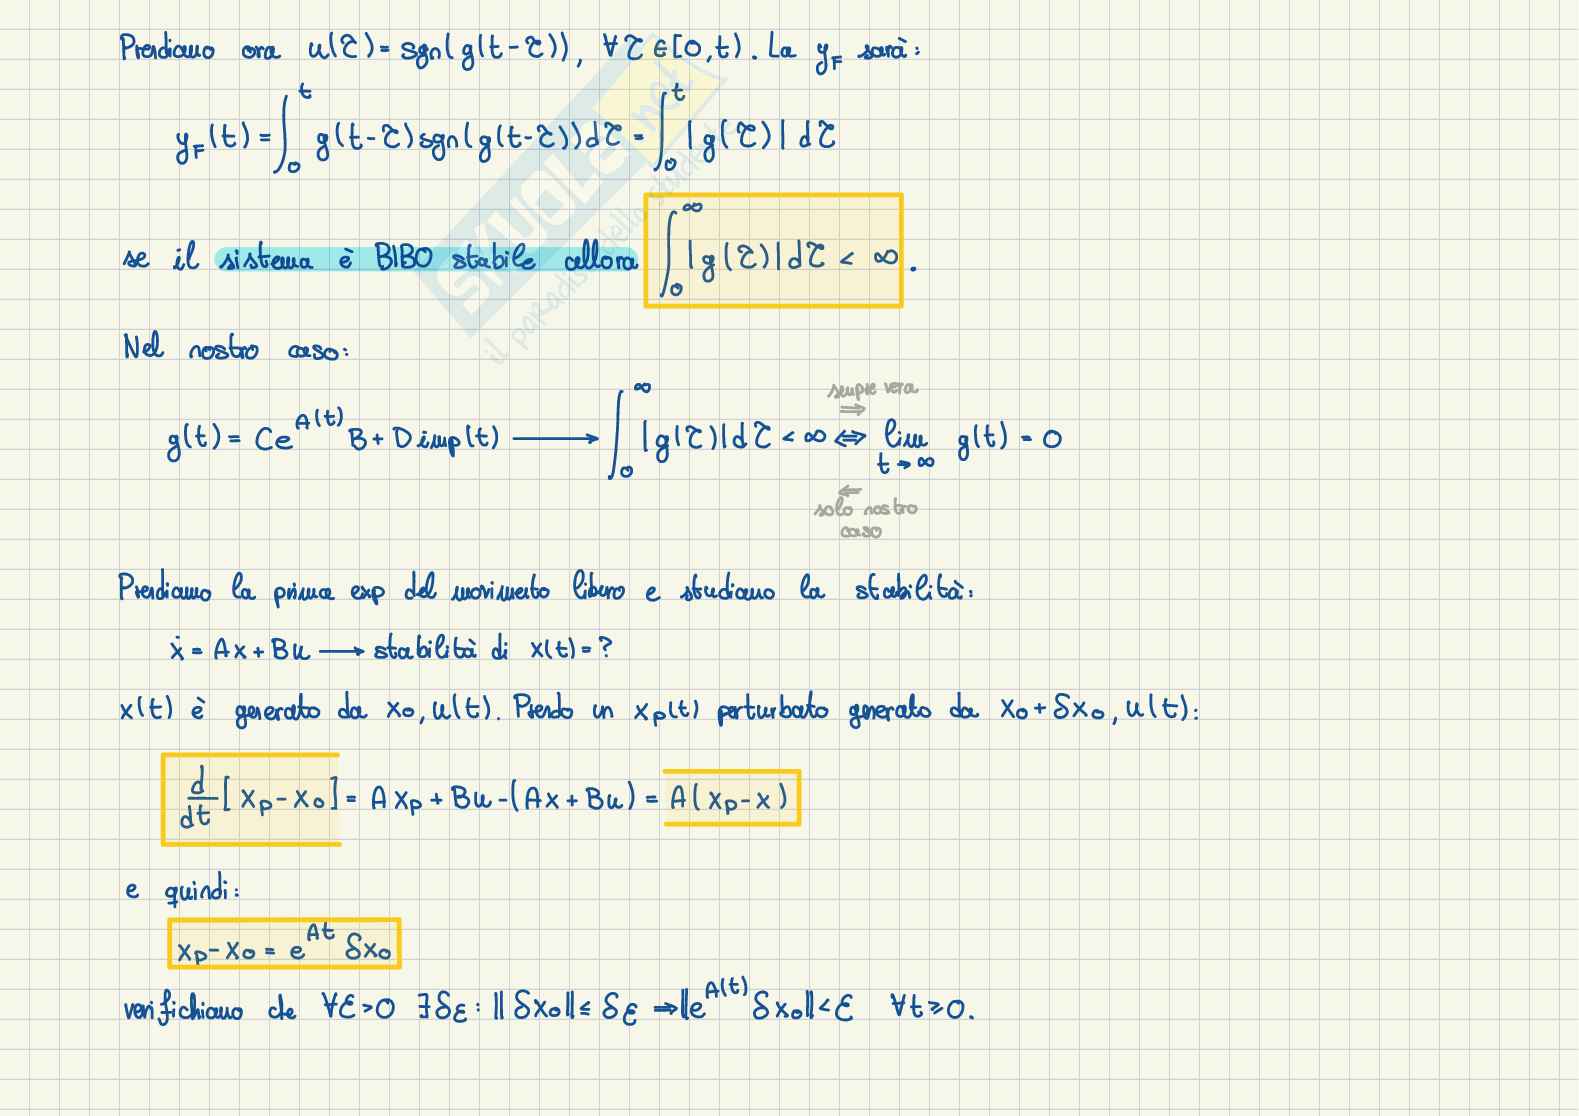 Prendiamo ora u(τ) = sgn(g(t-τ)), ∀τ∈[0,t). La y_F sarà:
y_F(t) = ∫_0^t g(t-τ) sgn(g(t-τ))dτ = ∫_0^t |g(τ)| dτ
se il sistema è BIBO stabile allora ∫_0^∞ |g(τ)|dτ < ∞.
Nel nostro caso:
sempre vera
⇒
g(t) = Ce^{A(t)} B + D imp(t) ⟶ ∫_0^∞ |g(τ)|dτ < ∞ ⇔ lim_{t→∞} g(t) = 0
⇐
solo nostro
caso
Prendiamo la prima exp del movimento libero e studiamo la stabilità:
ẋ = Ax + Bu ⟶ stabilità di x(t) = ?
x(t) è generato da x₀, u(t). Prendo un x_p(t) perturbato generato da x₀ + δx₀, u(t):
d/dt [x_p - x₀] = Ax_p + Bu - (Ax + Bu) = A(x_p - x)
e quindi:
x_p - x₀ = e^{At} δx₀
verifichiamo che ∀ε>0 ∃δ_ε : ||δx₀|| ≤ δ_ε ⇒ ||e^{A(t)} δx₀|| < ε ∀t ≥ 0.
SKUOLA.net
il paradiso dello studente